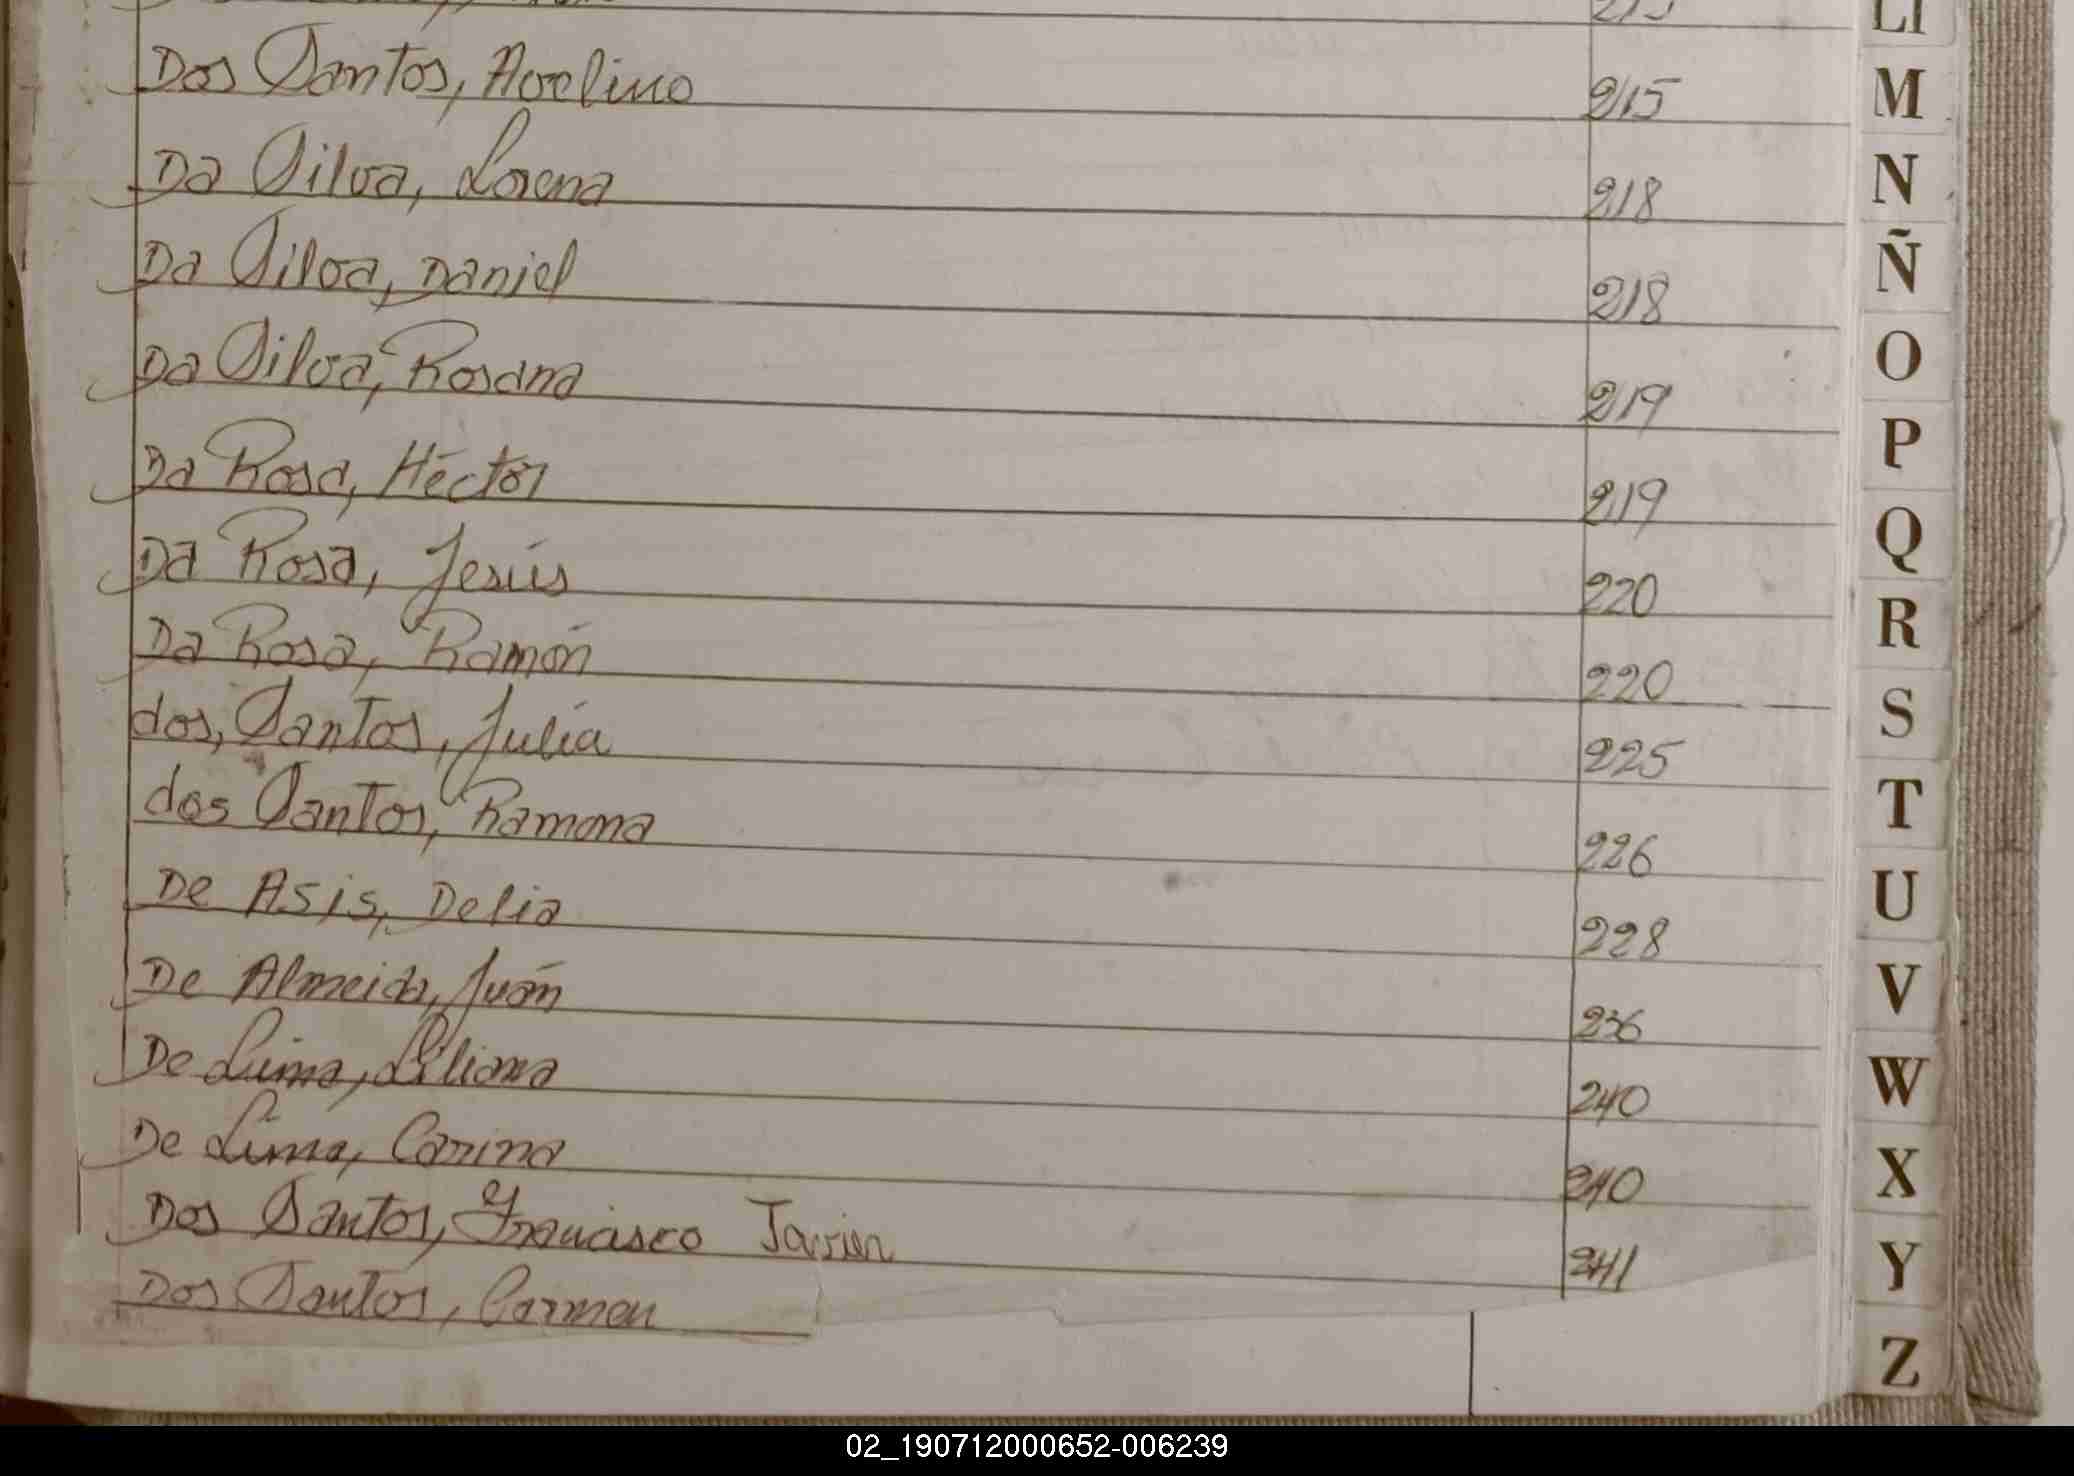 215
Dos Santos, Avelino 215
Da Silva, Lorena 218
Da Silva, Daniel 218
Da Silva, Rosana 219
Da Rosa, Héctor 219
Da Rosa, Jesús 220
Da Rosa, Ramón 220
dos, Santos, Julia 225
dos Santos, Ramona 226
De Asis, Delia 228
De Almeida, Juán 236
De Lima, Liliana 240
De Lima, Carina 240
Dos Santos, Francisco Javier 241
Dos Santos, Carmen
Ll
M
N
Ñ
O
P
Q
R
S
T
U
V
W
X
Y
Z
02_190712000652-006239